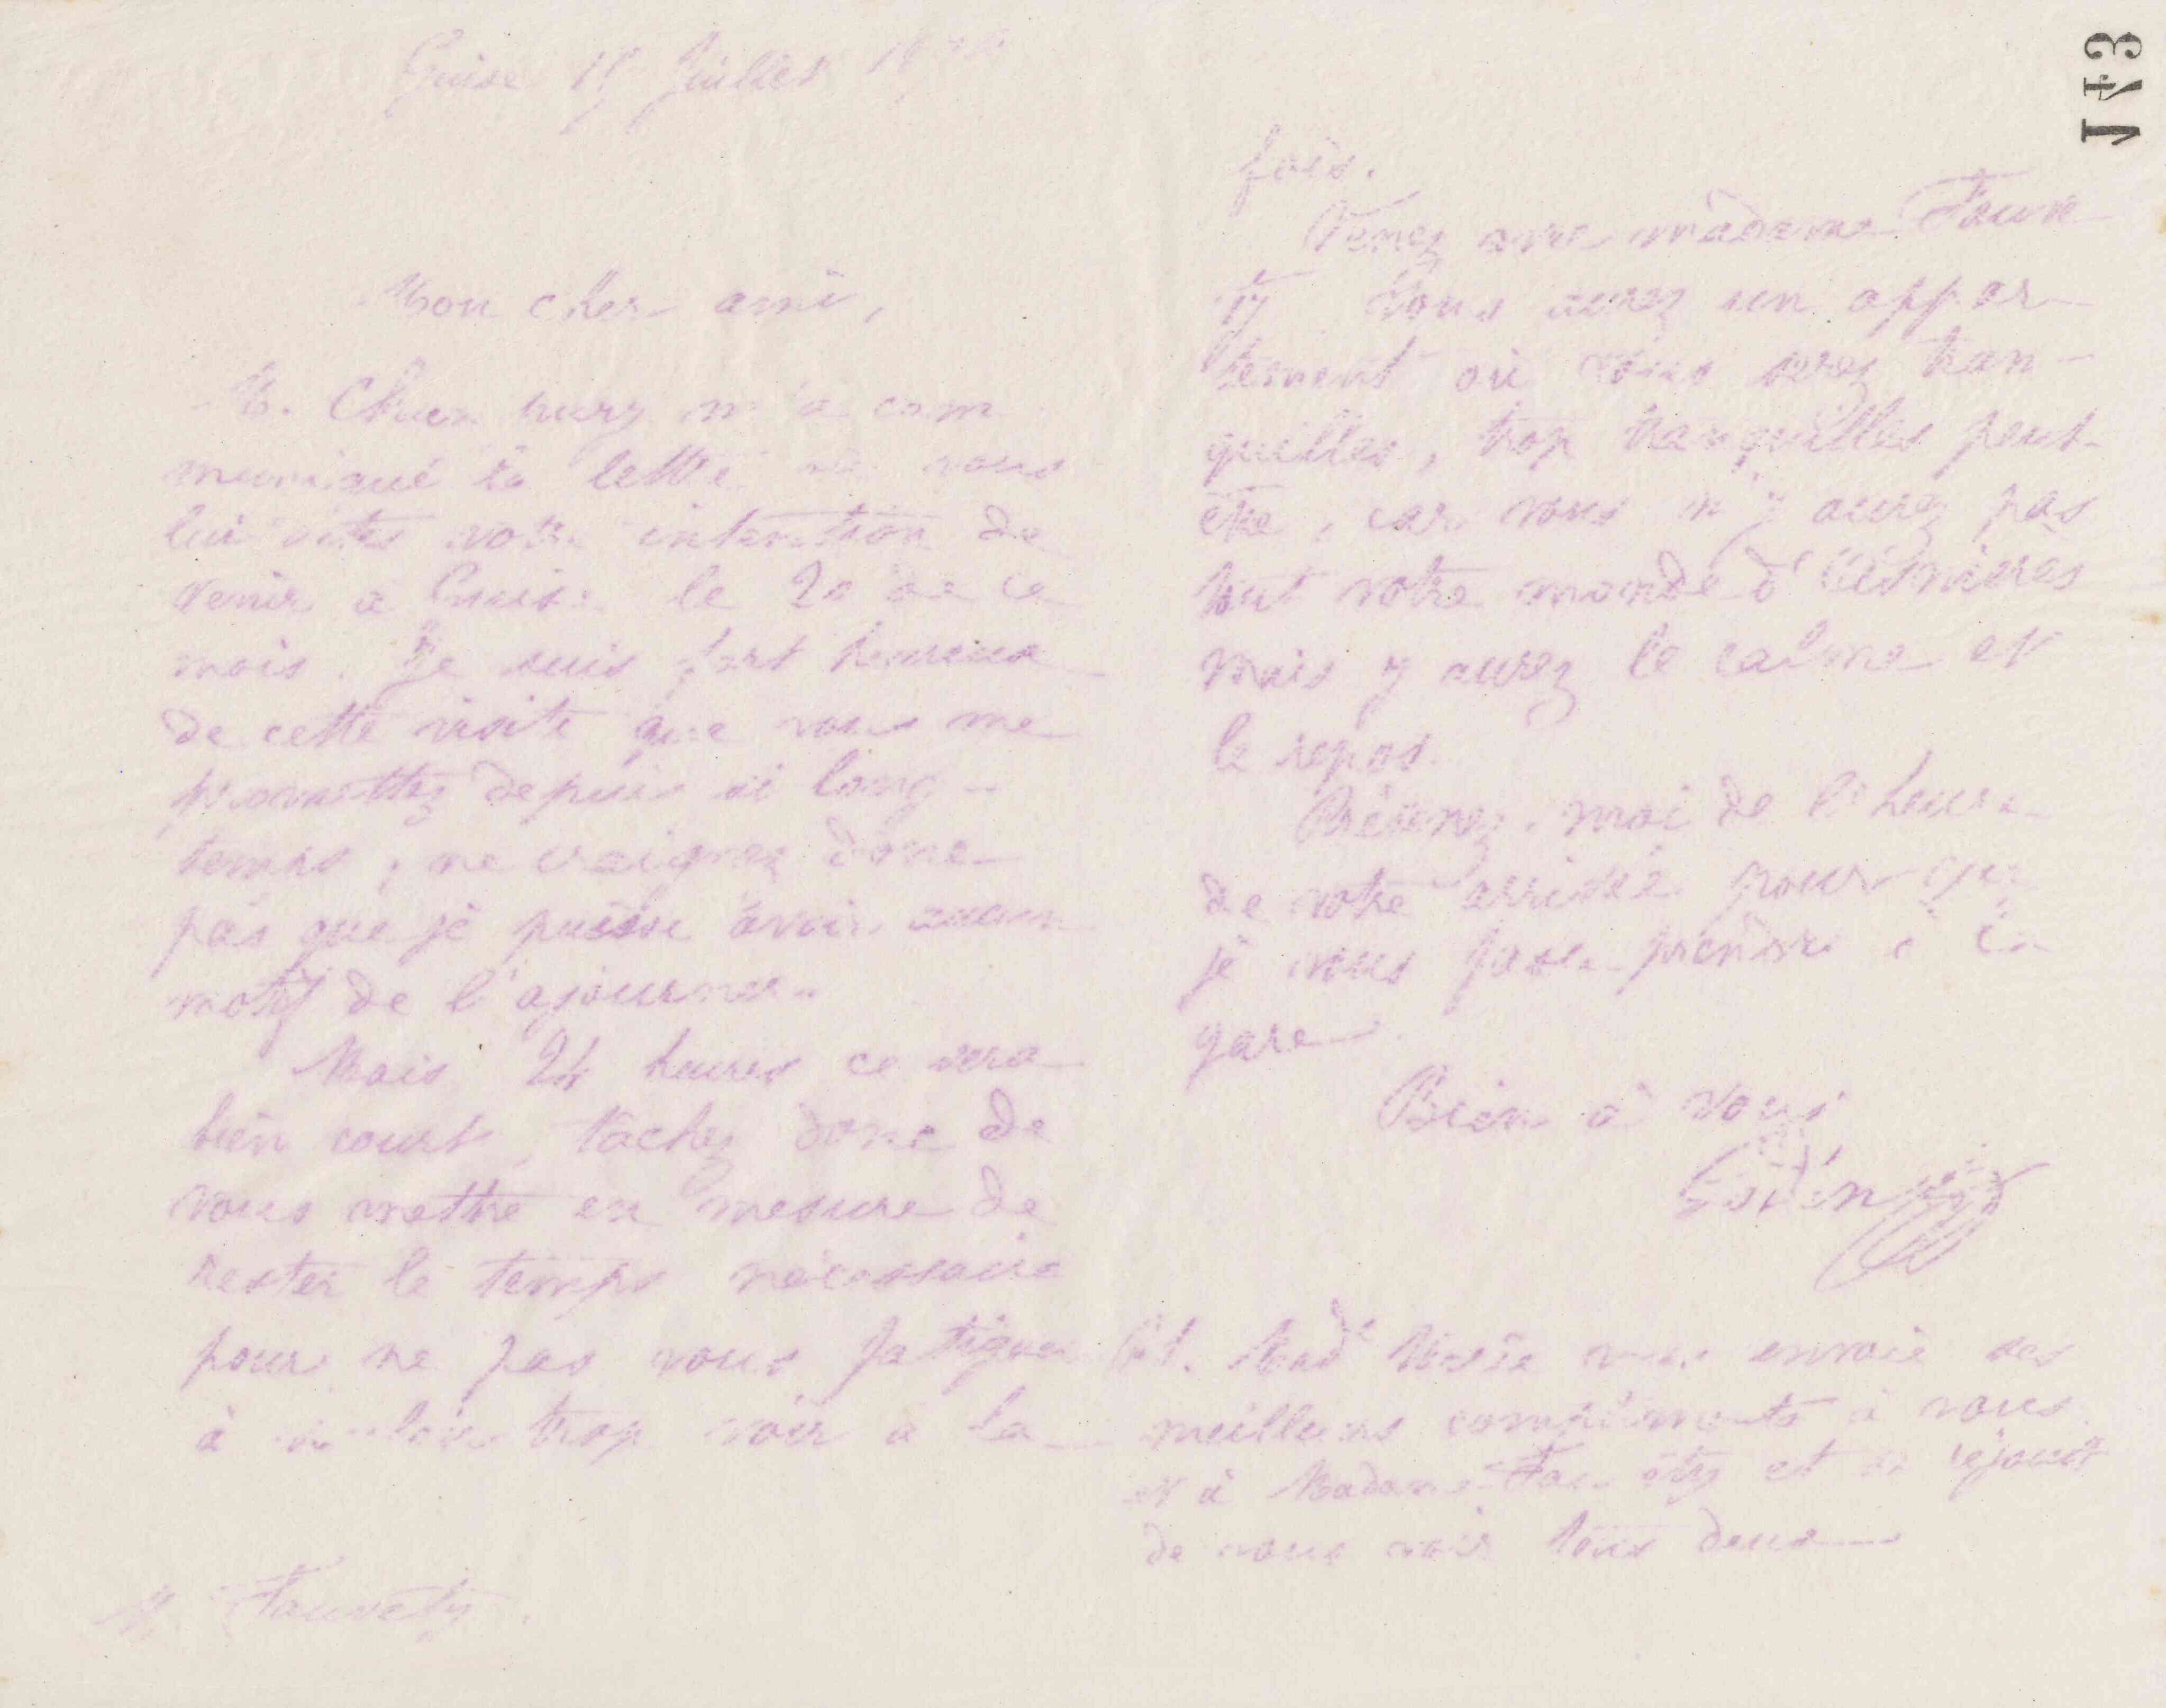 Guise 15 Juillet 18
Mon cher ami,
M. m'a com
muniqué la lettre où vous
lui dites votre intention de
venir à Guise le 20 de ce
mois. Je suis fort heureux
de cette visite que vous me
promettez depuis si long-
temps ; ne craignez donc
pas que je puisse avoir aucun
motif de l'ajourner.
Mais 24 heures ce sera
bien court, tachez donc de
vous mettre en mesure de
rester le temps nécessaire
pour ne pas vous fatiguer
à vouloir trop voir à la
M. Fauvety.
143
fois.
Venez avec madame Fauve
ty vous aurez un appar-
tement où vous serez tran-
quilles, trop tranquilles peut-
être, car vous n'y aurez pas
tout votre monde d'Asnières
mais y aurez le calme et
le repos.
Prévenez-moi de l'heure
de votre arrivée pour que
je vous fasse prendre à la
gare.
Bien à vous
Godin
P.S. Mad vous envoie ses
meilleurs compliments à vous
et à Madame Fauvety et se réjouit
de vous voir tous deux